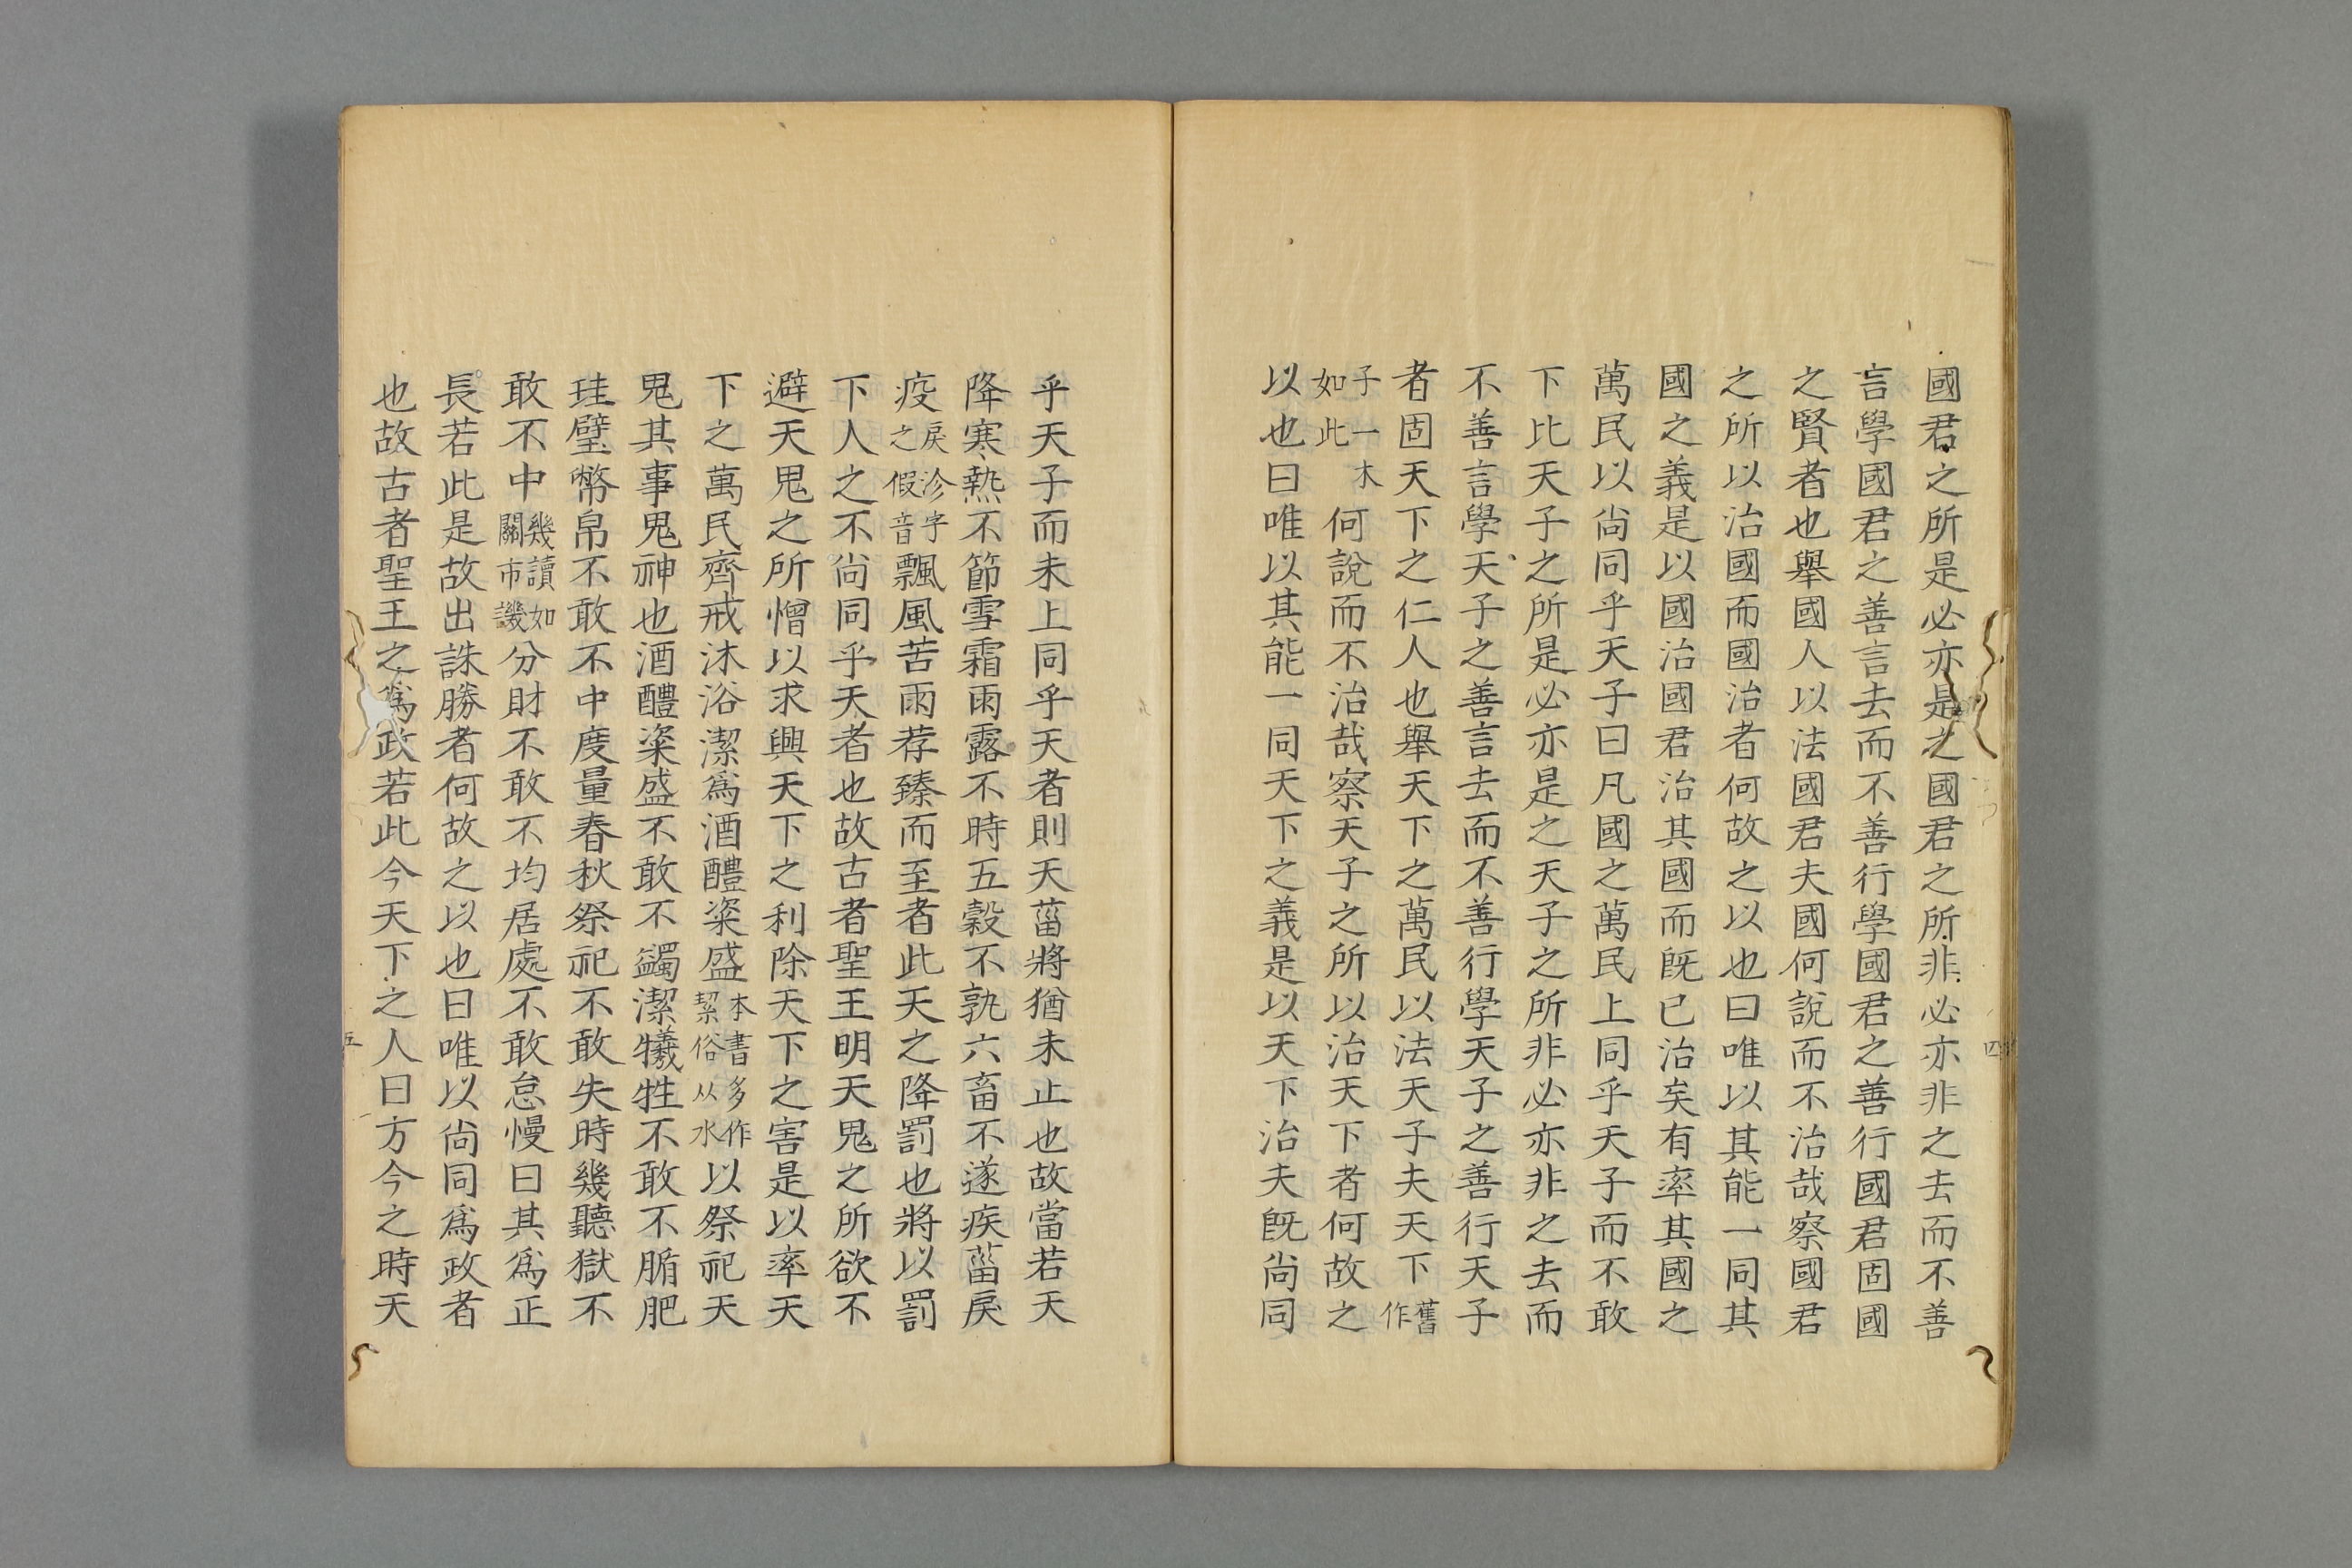 國君之所是必亦是之國君之所非必亦非之去而不善
言學國君之善言去而不善行學國君之善行國君固國
之賢者也舉國人以法國君夫國何說而不治哉察國君
之所以治國而國治者何故之以也曰唯以其能一同其
國之義是以國治國君治其國而旣已治矣有率其國之
萬民以尙同乎天子曰凡國之萬民上同乎天子而不敢
下比天子之所是必亦是之天子之所非必亦非之去而
不善言學天子之善言去而不善行學天子之善行天子
者固天下之仁人也舉天下之萬民以法天子夫天下舊作
子一本如此何說而不治哉察天子之所以治天下者何故之
以也曰唯以其能一同天下之義是以天下治夫旣尙同
四
乎天子而未上同乎天者則天菑將猶未止也故當若天
降寒熱不節雪霜雨露不時五穀不孰六畜不遂疾菑戾
疫戾沴字之假音飄風苦雨荐臻而至者此天之降罰也將以罰
下人之不尙同乎天者也故古者聖王明天鬼之所欲不
避天鬼之所憎以求興天下之利除天下之害是以率天
下之萬民齊戒沐浴潔爲酒醴粢盛本書多作絜俗从水以祭祀天
鬼其事鬼神也酒醴粢盛不敢不蠲潔犧牲不敢不腯肥
珪璧幣帛不敢不中度量春秋祭祀不敢失時幾聽獄不
敢不中幾讀如關市譏分財不敢不均居處不敢怠慢曰其爲正
長若此是故出誅勝者何故之以也曰唯以尙同爲政者
也故古者聖王之爲政若此今天下之人曰方今之時天
五